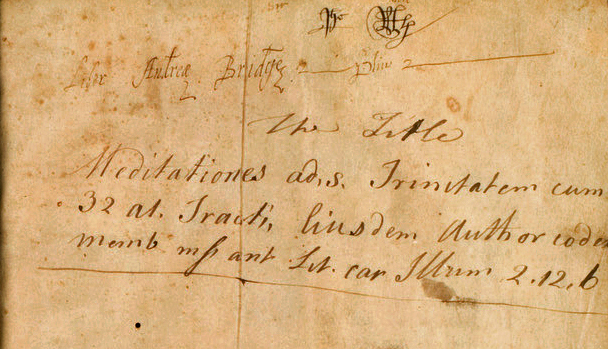 Liber Andreæ Bridges
The Title
Meditationes ad. s. Trinitatem cum
32 al. Tract, Eiusdem Author codex
memb mss ant Lit. car Illum 2.12.6